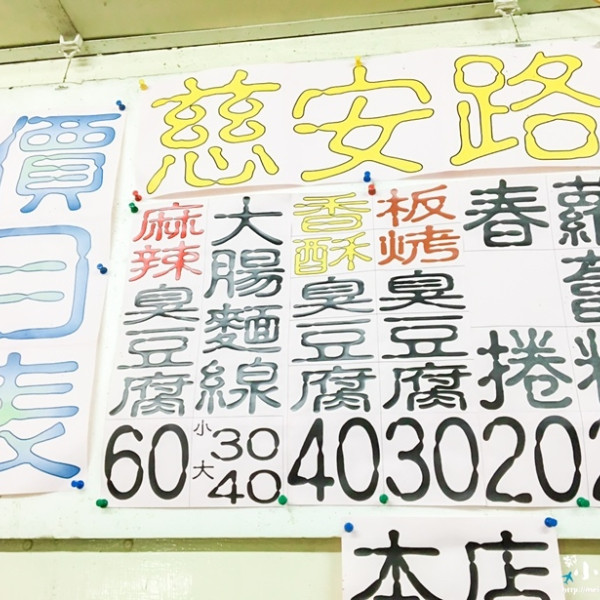 價目表
慈安路
麻辣臭豆腐
60
大腸麵線
小 30
大 40
香酥臭豆腐
40
板烤臭豆腐
30
春捲
20
蘿蔔
2
本店
小